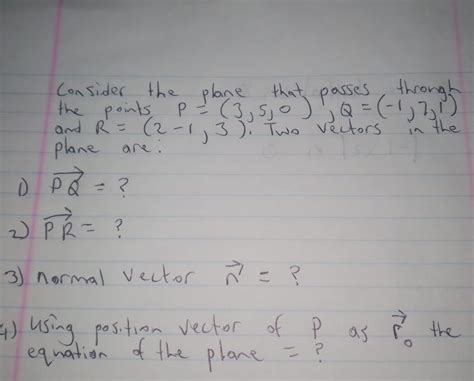 Consider the plane that passes through
the points P = (3,5,0), Q = (-1,7,1)
and R = (2-1,3). Two vectors in the
plane are:
1) PQ⃗ = ?
2) PR⃗ = ?
3) normal vector n⃗ = ?
4) Using position vector of P as r⃗₀ the
equation of the plane = ?